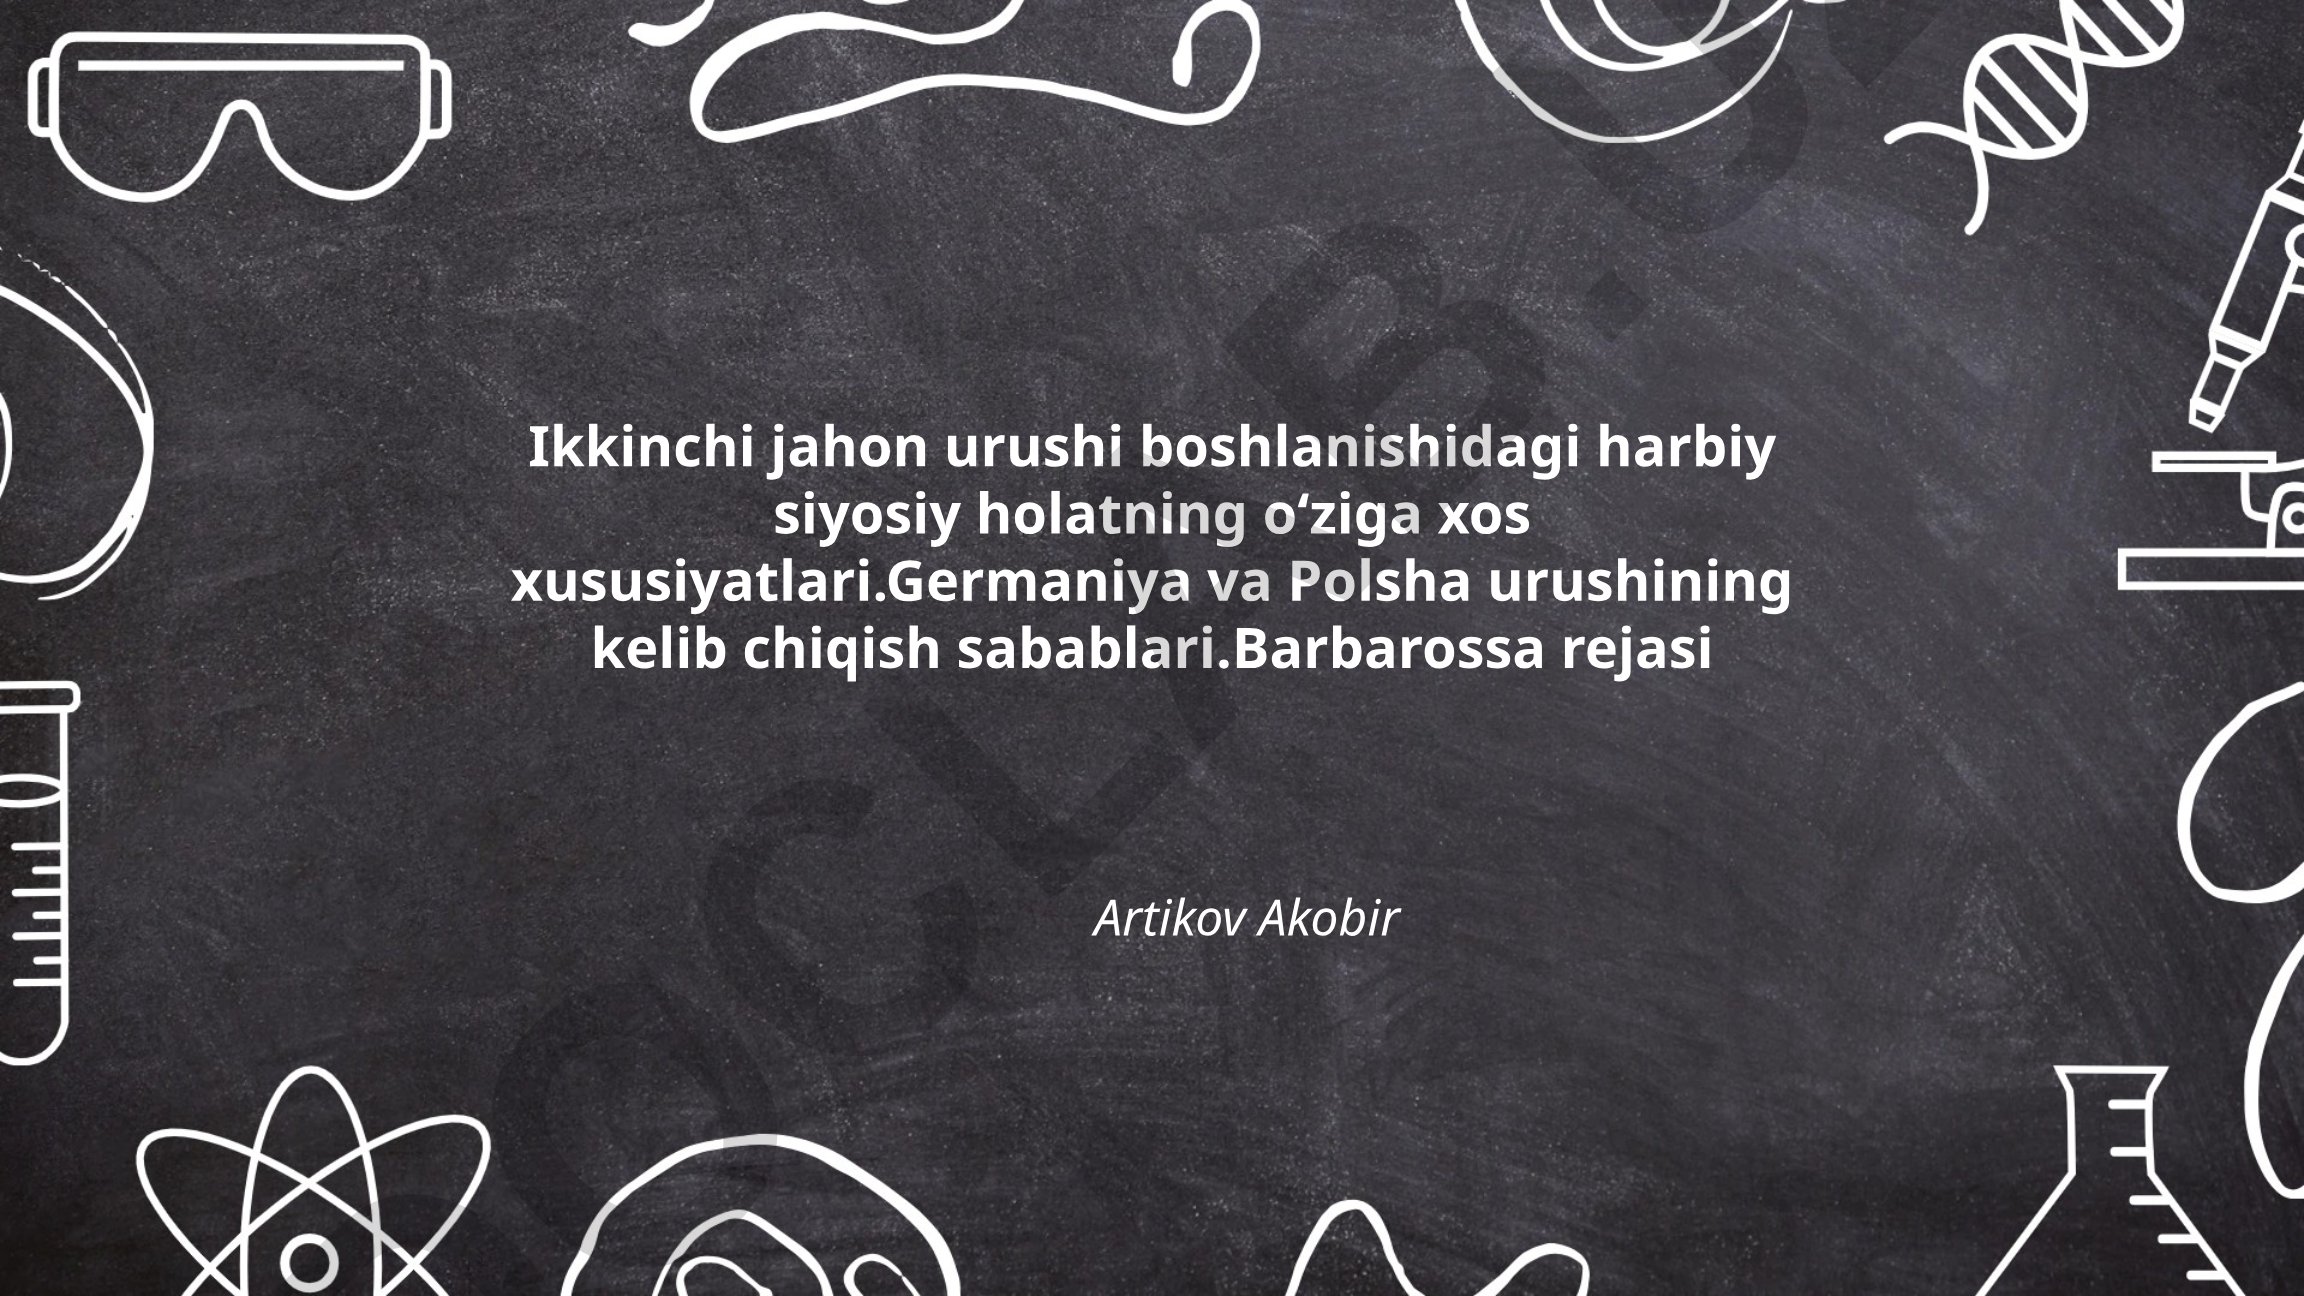 Ikkinchi jahon urushi boshlanishidagi harbiy
siyosiy holatning o‘ziga xos
xususiyatlari.Germaniya va Polsha urushining
kelib chiqish sabablari.Barbarossa rejasi
Artikov Akobir